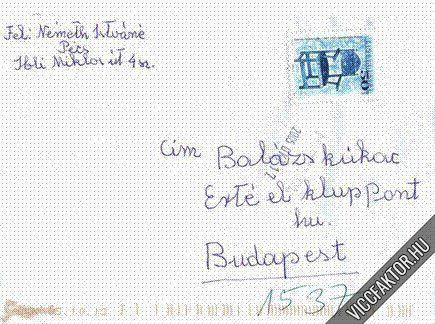 Fel: Németh Istváné
Pécs
Ibli Miklos út 4 sz.
50
Cím Balázs kukac
Erté el klupPont
hu.
Budapest
1537
VICCFAKTOR.HU